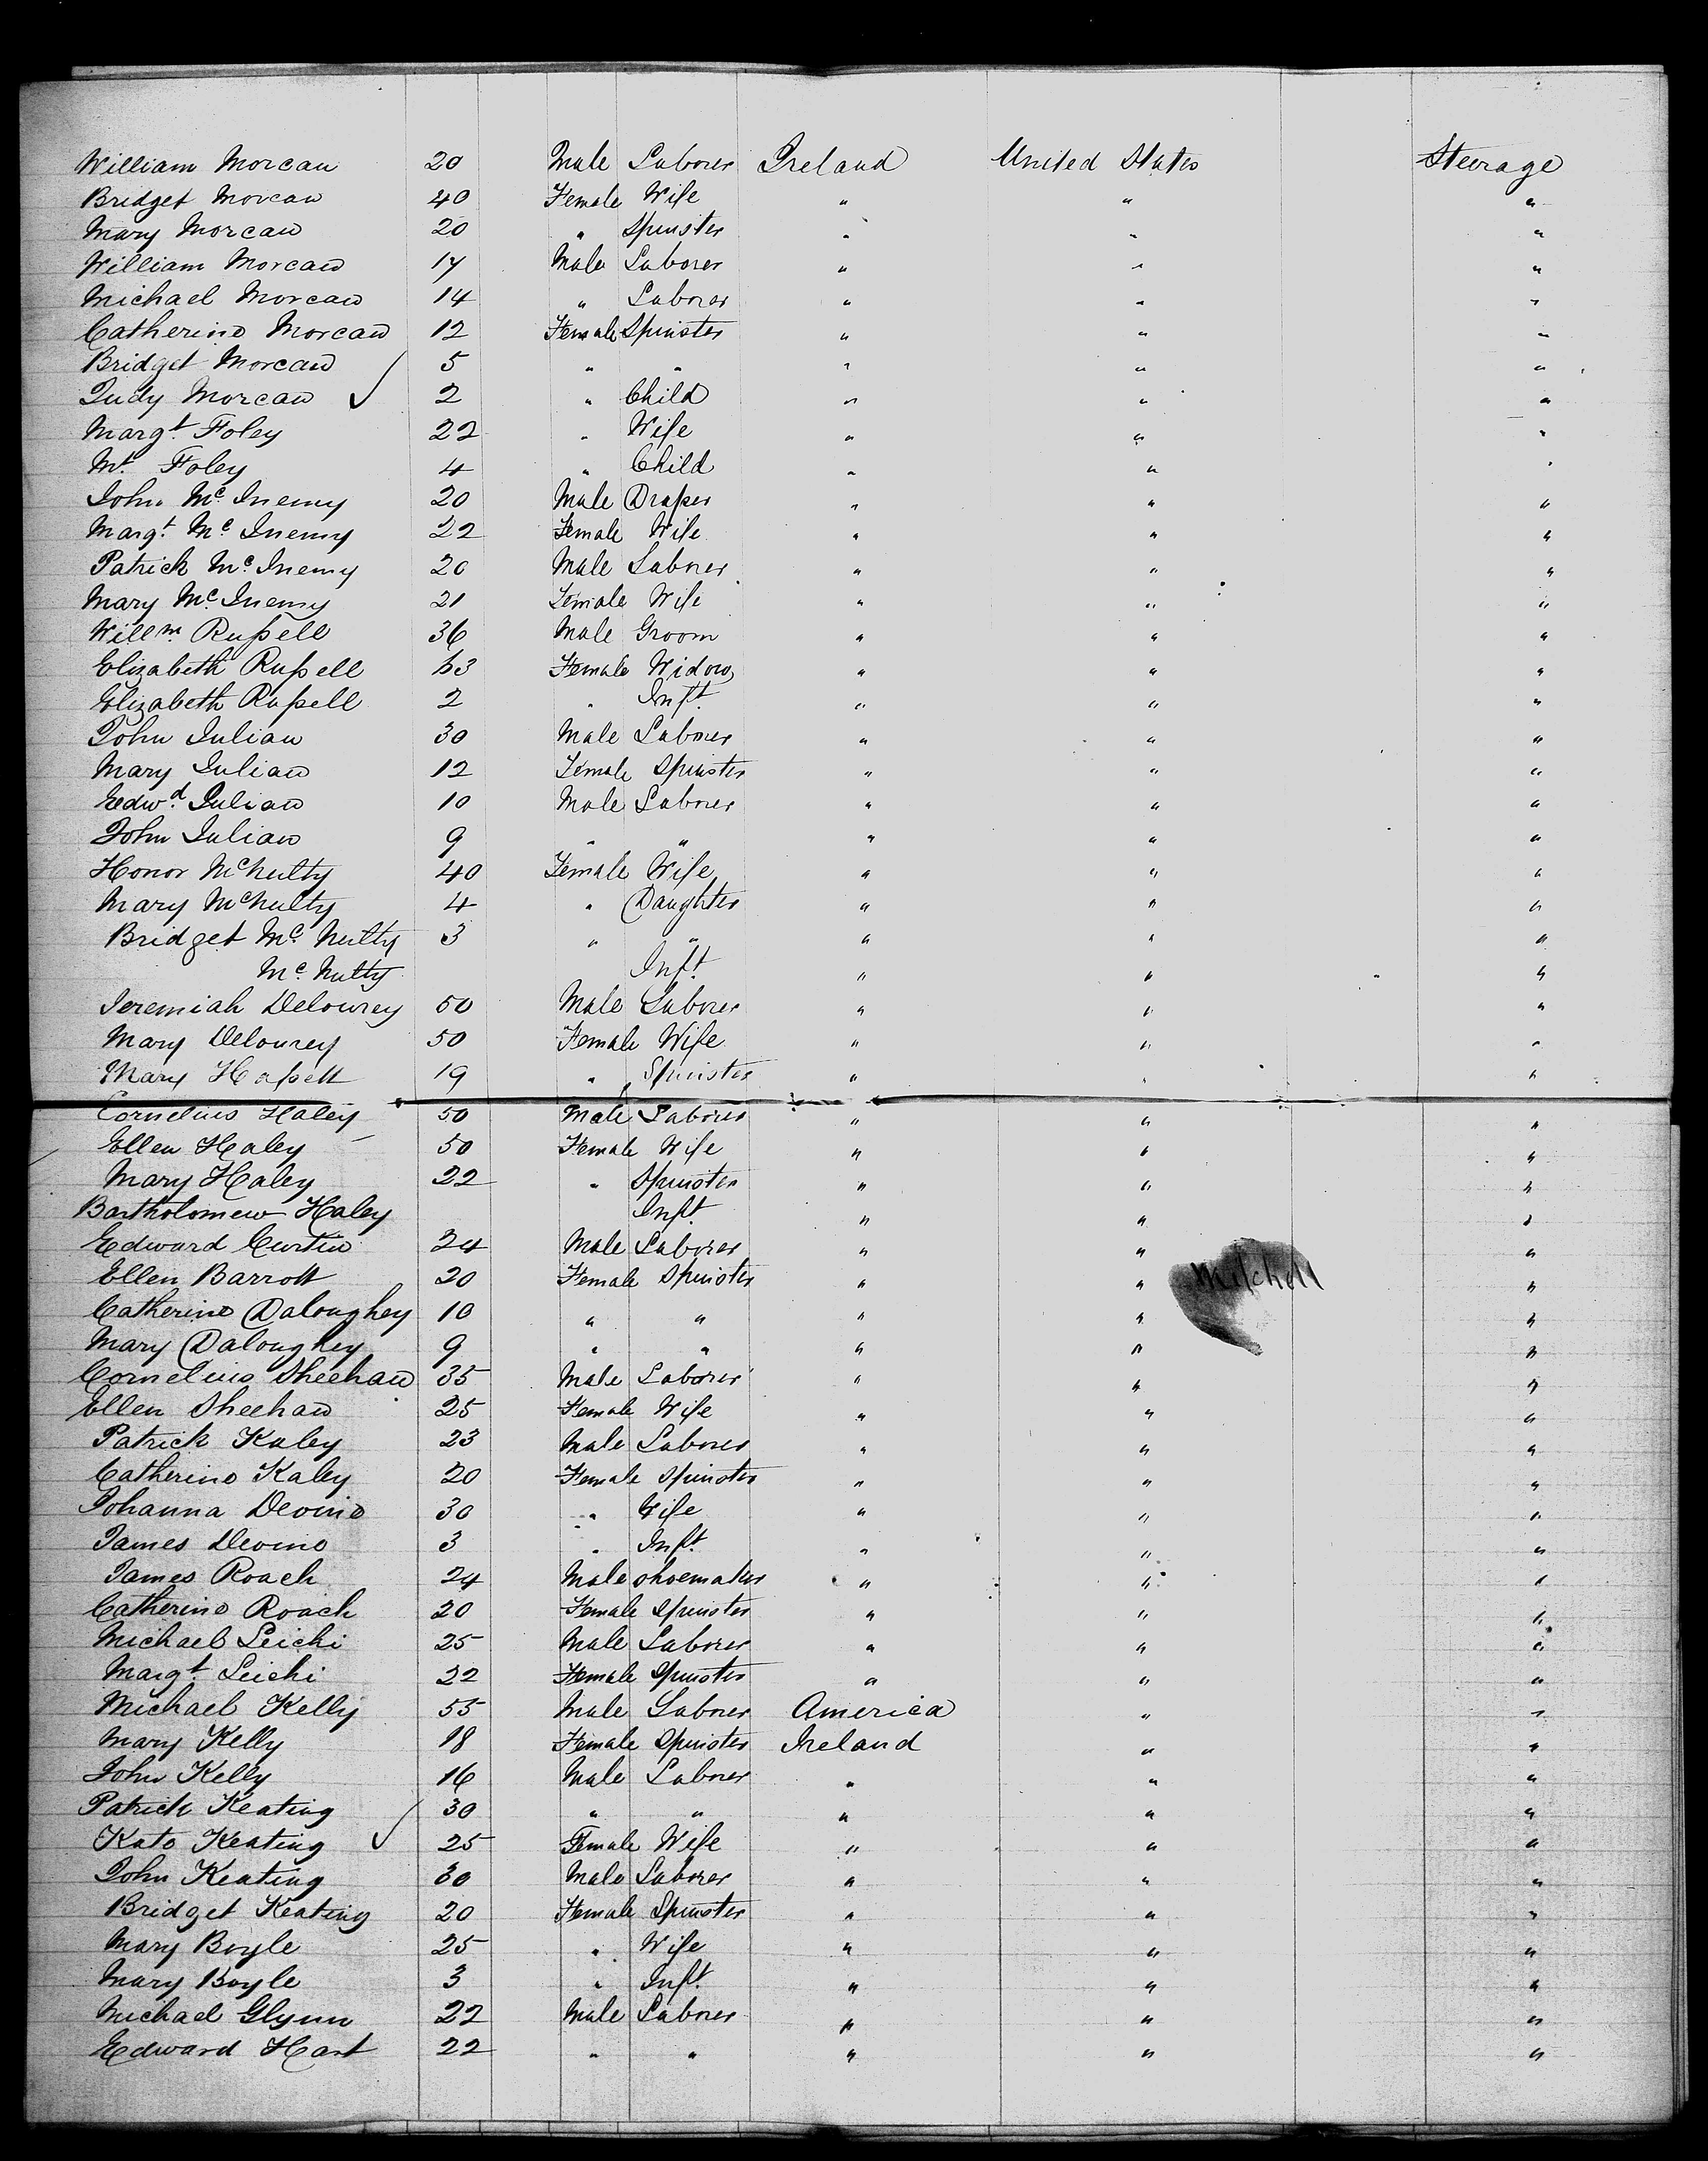 William Morcan 20 Male Laborer Ireland United States Steerage
Bridget Morcan 40 Female Wife " " "
Mary Morcan 20 " Spinster " " "
William Morcan 17 Male Laborer " " "
Michael Morcan 14 " Laborer " " "
Catherine Morcan 12 Female Spinster " " "
Bridget Morcan 5 " " " " "
Judy Morcan ✓ 2 " Child " " "
Margt. Foley 22 " Wife " " "
Mt. Foley 4 " Child " " "
John Mc. Inemy 20 Male Draper " " "
Margt. Mc Inemy 22 Female Wife " " "
Patrick Mc. Inemy 20 Male Laborer " " "
Mary Mc. Inemy 21 Female Wife " " "
Willm. Russell 36 Male Groom " " "
Elizabeth Russell 63 Female Widow " " "
Elizabeth Russell 2 " Inft. " " "
John Julian 30 Male Laborer " " "
Mary Julian 12 Female Spinster " " "
Edwd. Julian 10 Male Laborer " " "
John Julian 9 " " " " "
Honor McNulty 40 Female Wife " " "
Mary McNulty 4 " Daughter " " "
Bridget Mc. Nulty 3 " " " " "
Mc. Nulty Inft. " " "
Jeremiah Delourey 50 Male Laborer " " "
Mary Delourey 50 Female Wife " " "
Mary Hassett 19 " Spinster " " "
Cornelius Haley 50 Male Laborer " " "
Ellen Haley 50 Female Wife " " "
Mary Haley 22 " Spinster " " "
Bartholomew Haley Inft. " " "
Edward Curtin 24 Male Laborer " " "
Mitchell
Ellen Barrott 20 Female Spinster " " "
Catherine Daloughey 10 " " " " "
Mary Daloughey 9 " " " " "
Cornelius Sheehan 35 Male Laborer " " "
Ellen Sheehan 25 Female Wife " " "
Patrick Kaley 23 Male Laborer " " "
Catherine Kaley 20 Female Spinster " " "
Johanna Devine 30 " Wife " " "
James Devine 3 " Inft. " " "
James Roach 24 Male Shoemaker " " "
Catherine Roach 20 Female Spinster " " "
Michael Leichi 25 Male Laborer " " "
Margt. Leichi 22 Female Spinster " " "
Michael Kelly 55 Male Laborer America " "
Mary Kelly 18 Female Spinster Ireland " "
John Kelly 16 Male Laborer " " "
Patrick Keating 30 " " " " "
Kate Keating ✓ 25 Female Wife " " "
John Keating 30 Male Laborer " " "
Bridget Keating 20 Female Spinster " " "
Mary Boyle 25 " Wife " " "
Mary Boyle 3 " Inft. " " "
Michael Glynn 22 Male Laborer " " "
Edward Hart 22 " " " " "